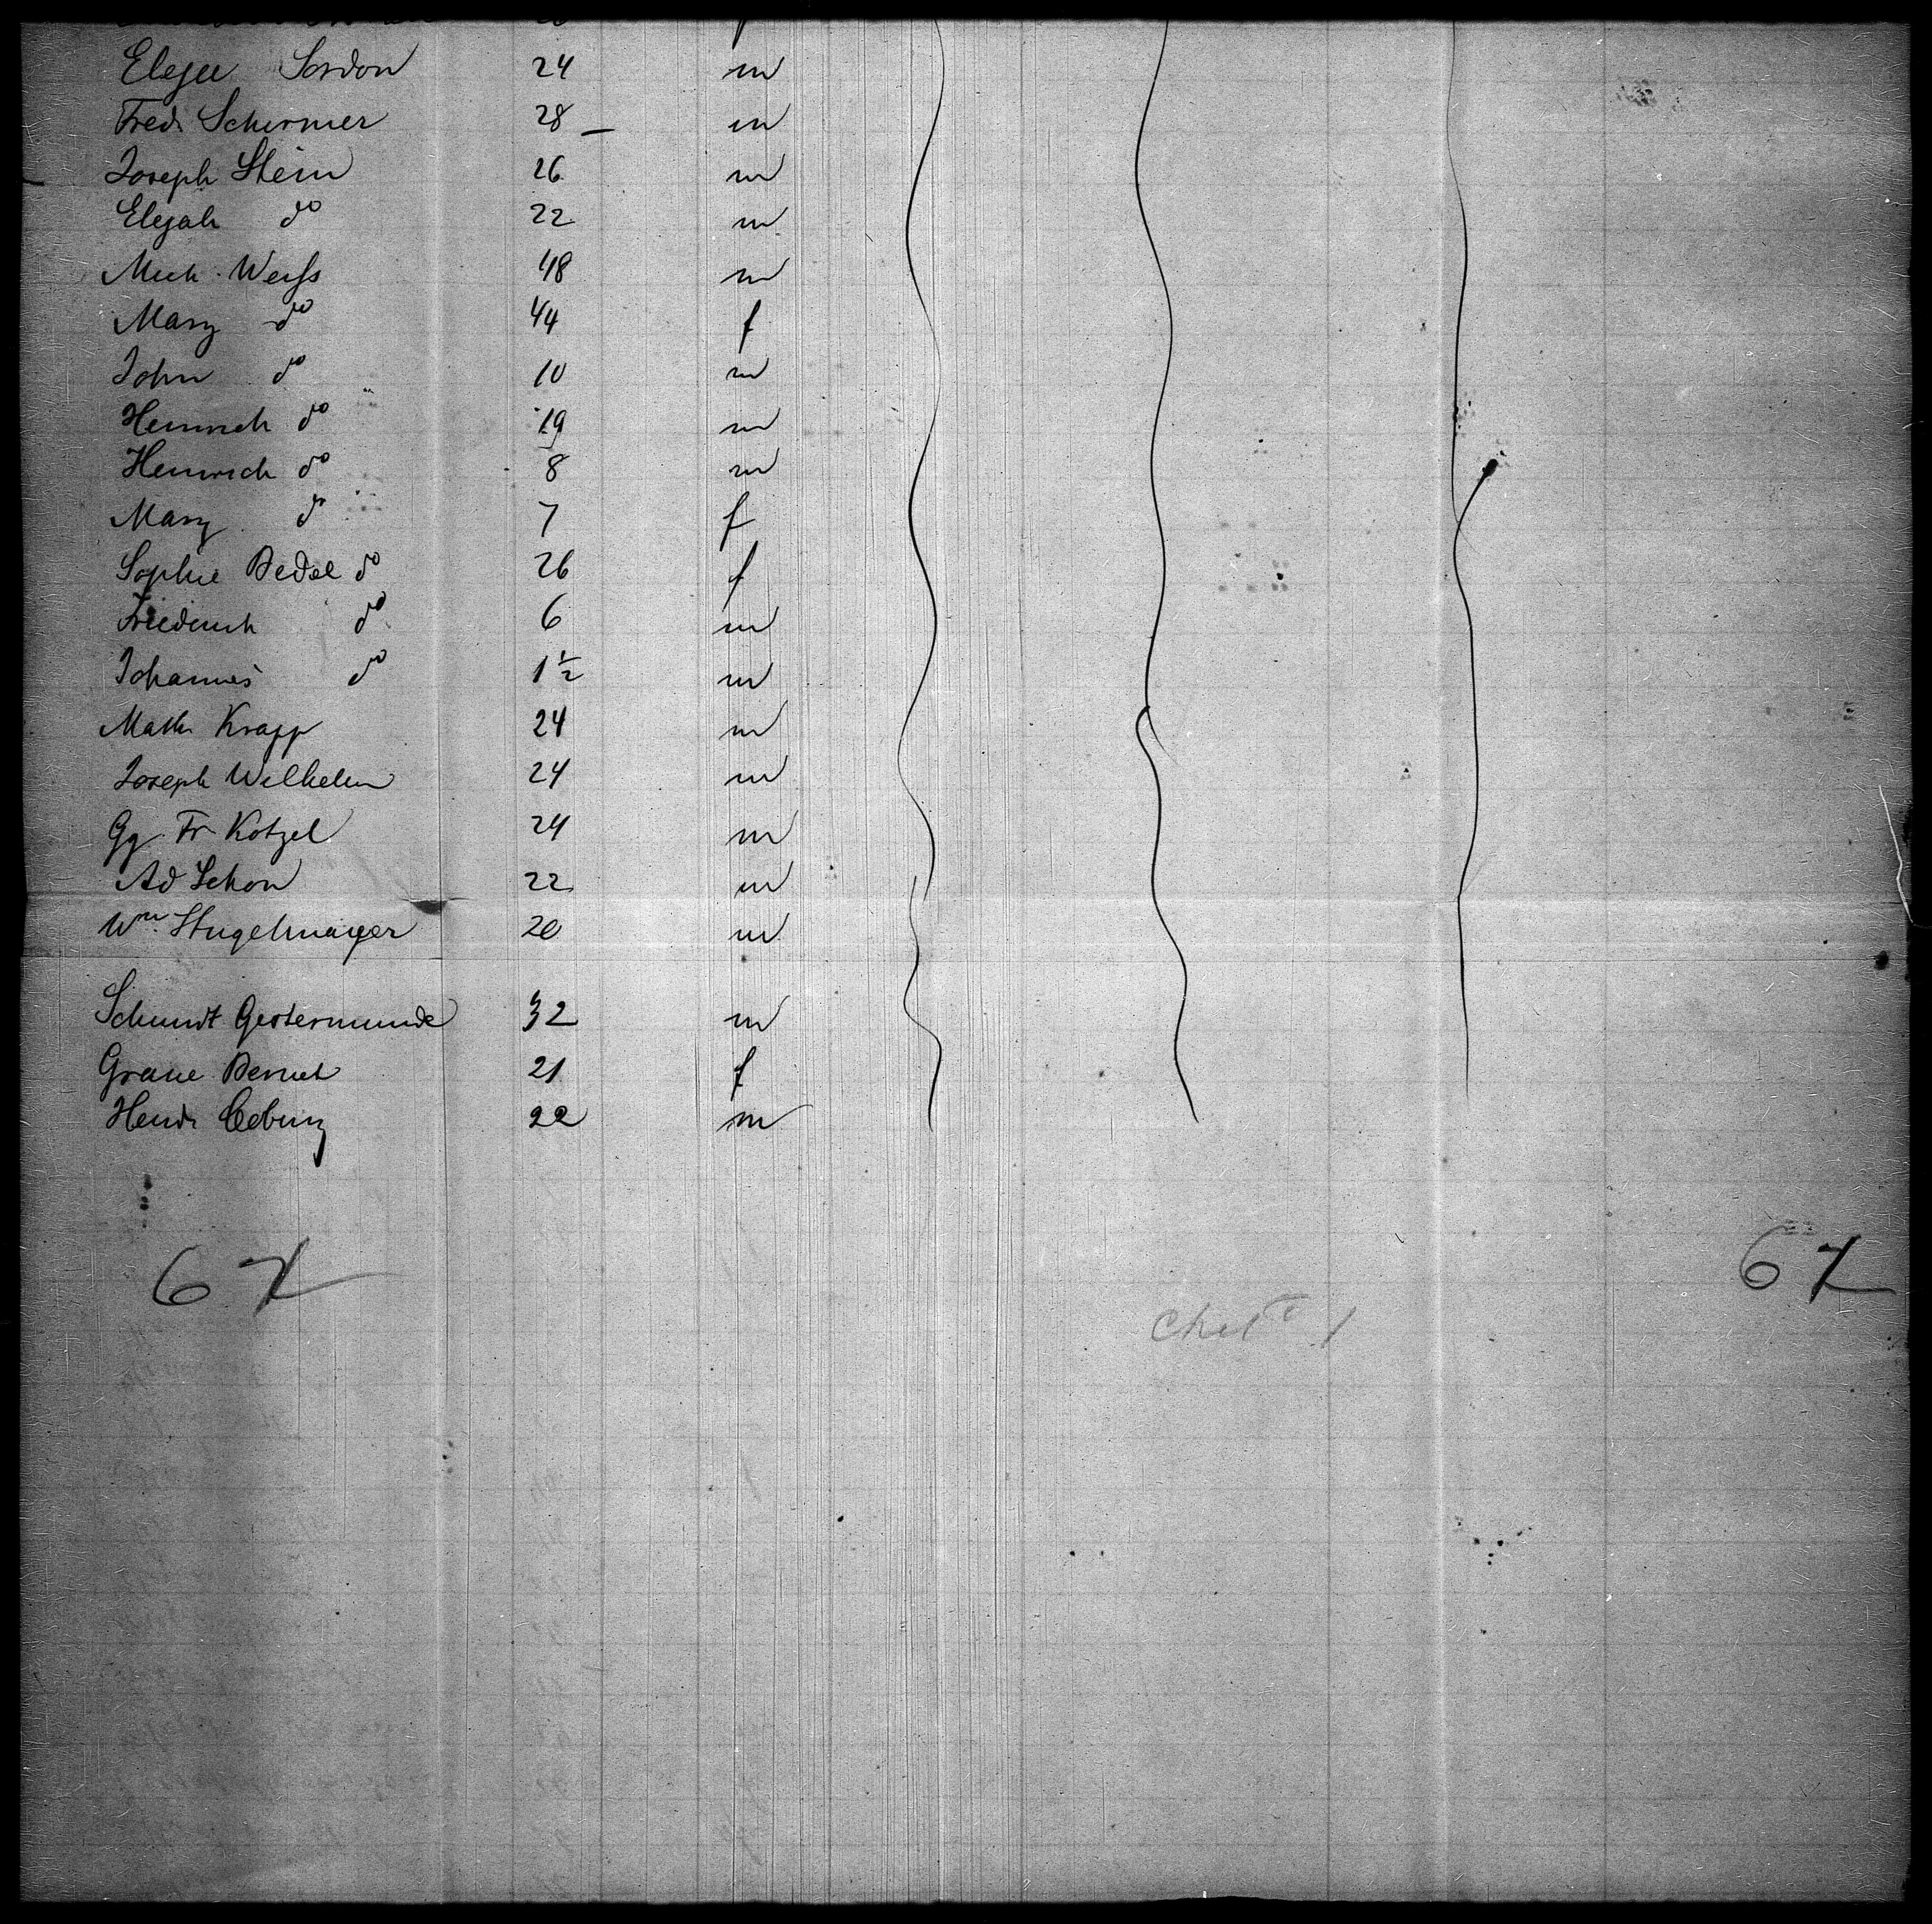 Elejee Sordon 24 m
Fred. Schirmer 28 — m
Joseph Stein 26 m
Elejah do 22 m
Mich. Weiss 48 m
Mary do 44 f
John do 10 m
Heinrich do 19 m
Heinrich do 8 m
Mary do 7 f
Sophie Bedel do 26 f
Friederich do 6 m
Johannes do 1½ m
Math Krapp 24 m
Joseph Wilhelm 24 m
Gg Fr Kotzel 24 m
Ad Schon 22 m
Wm. 20 m
Schmidt Gestermunde 32 m
Grane 21 f
22 m
67 67